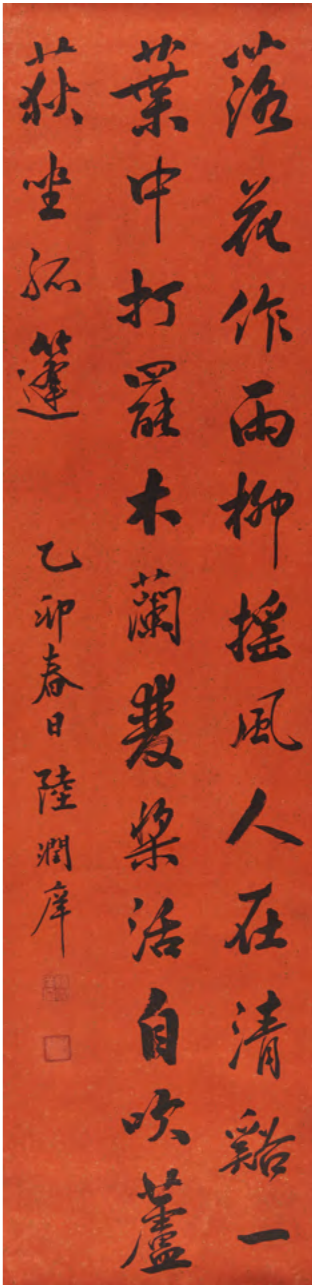 落花作雨柳摇風人在清谿一
葉中打罷木蘭雙槳活自吹蘆
荻坐孤篷
乙卯春日陸潤庠